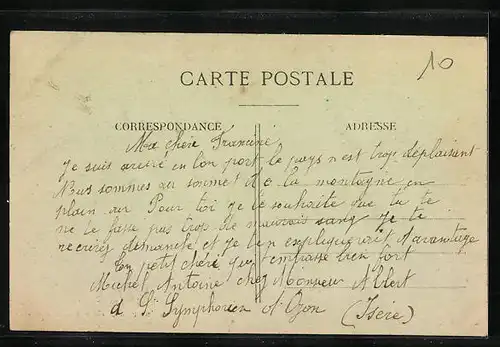 10
CARTE POSTALE
CORRESPONDANCE
ADRESSE
Ma chère Francine
Je suis arrivé en bon port le pays n'est trop déplaisant
Nous sommes au sommet de la montagne en
plein air Pour toi je te souhaite que tu te
ne te fasse pas trop de mauvais sang Je te
recrirez dimanche et je t'en expliquerait d'avantage
Ton petit chéri qui t'embrasse bien fort
Michel Antoine chez Monsieur Albert
d St Symphorien d'Ozon (Isère)